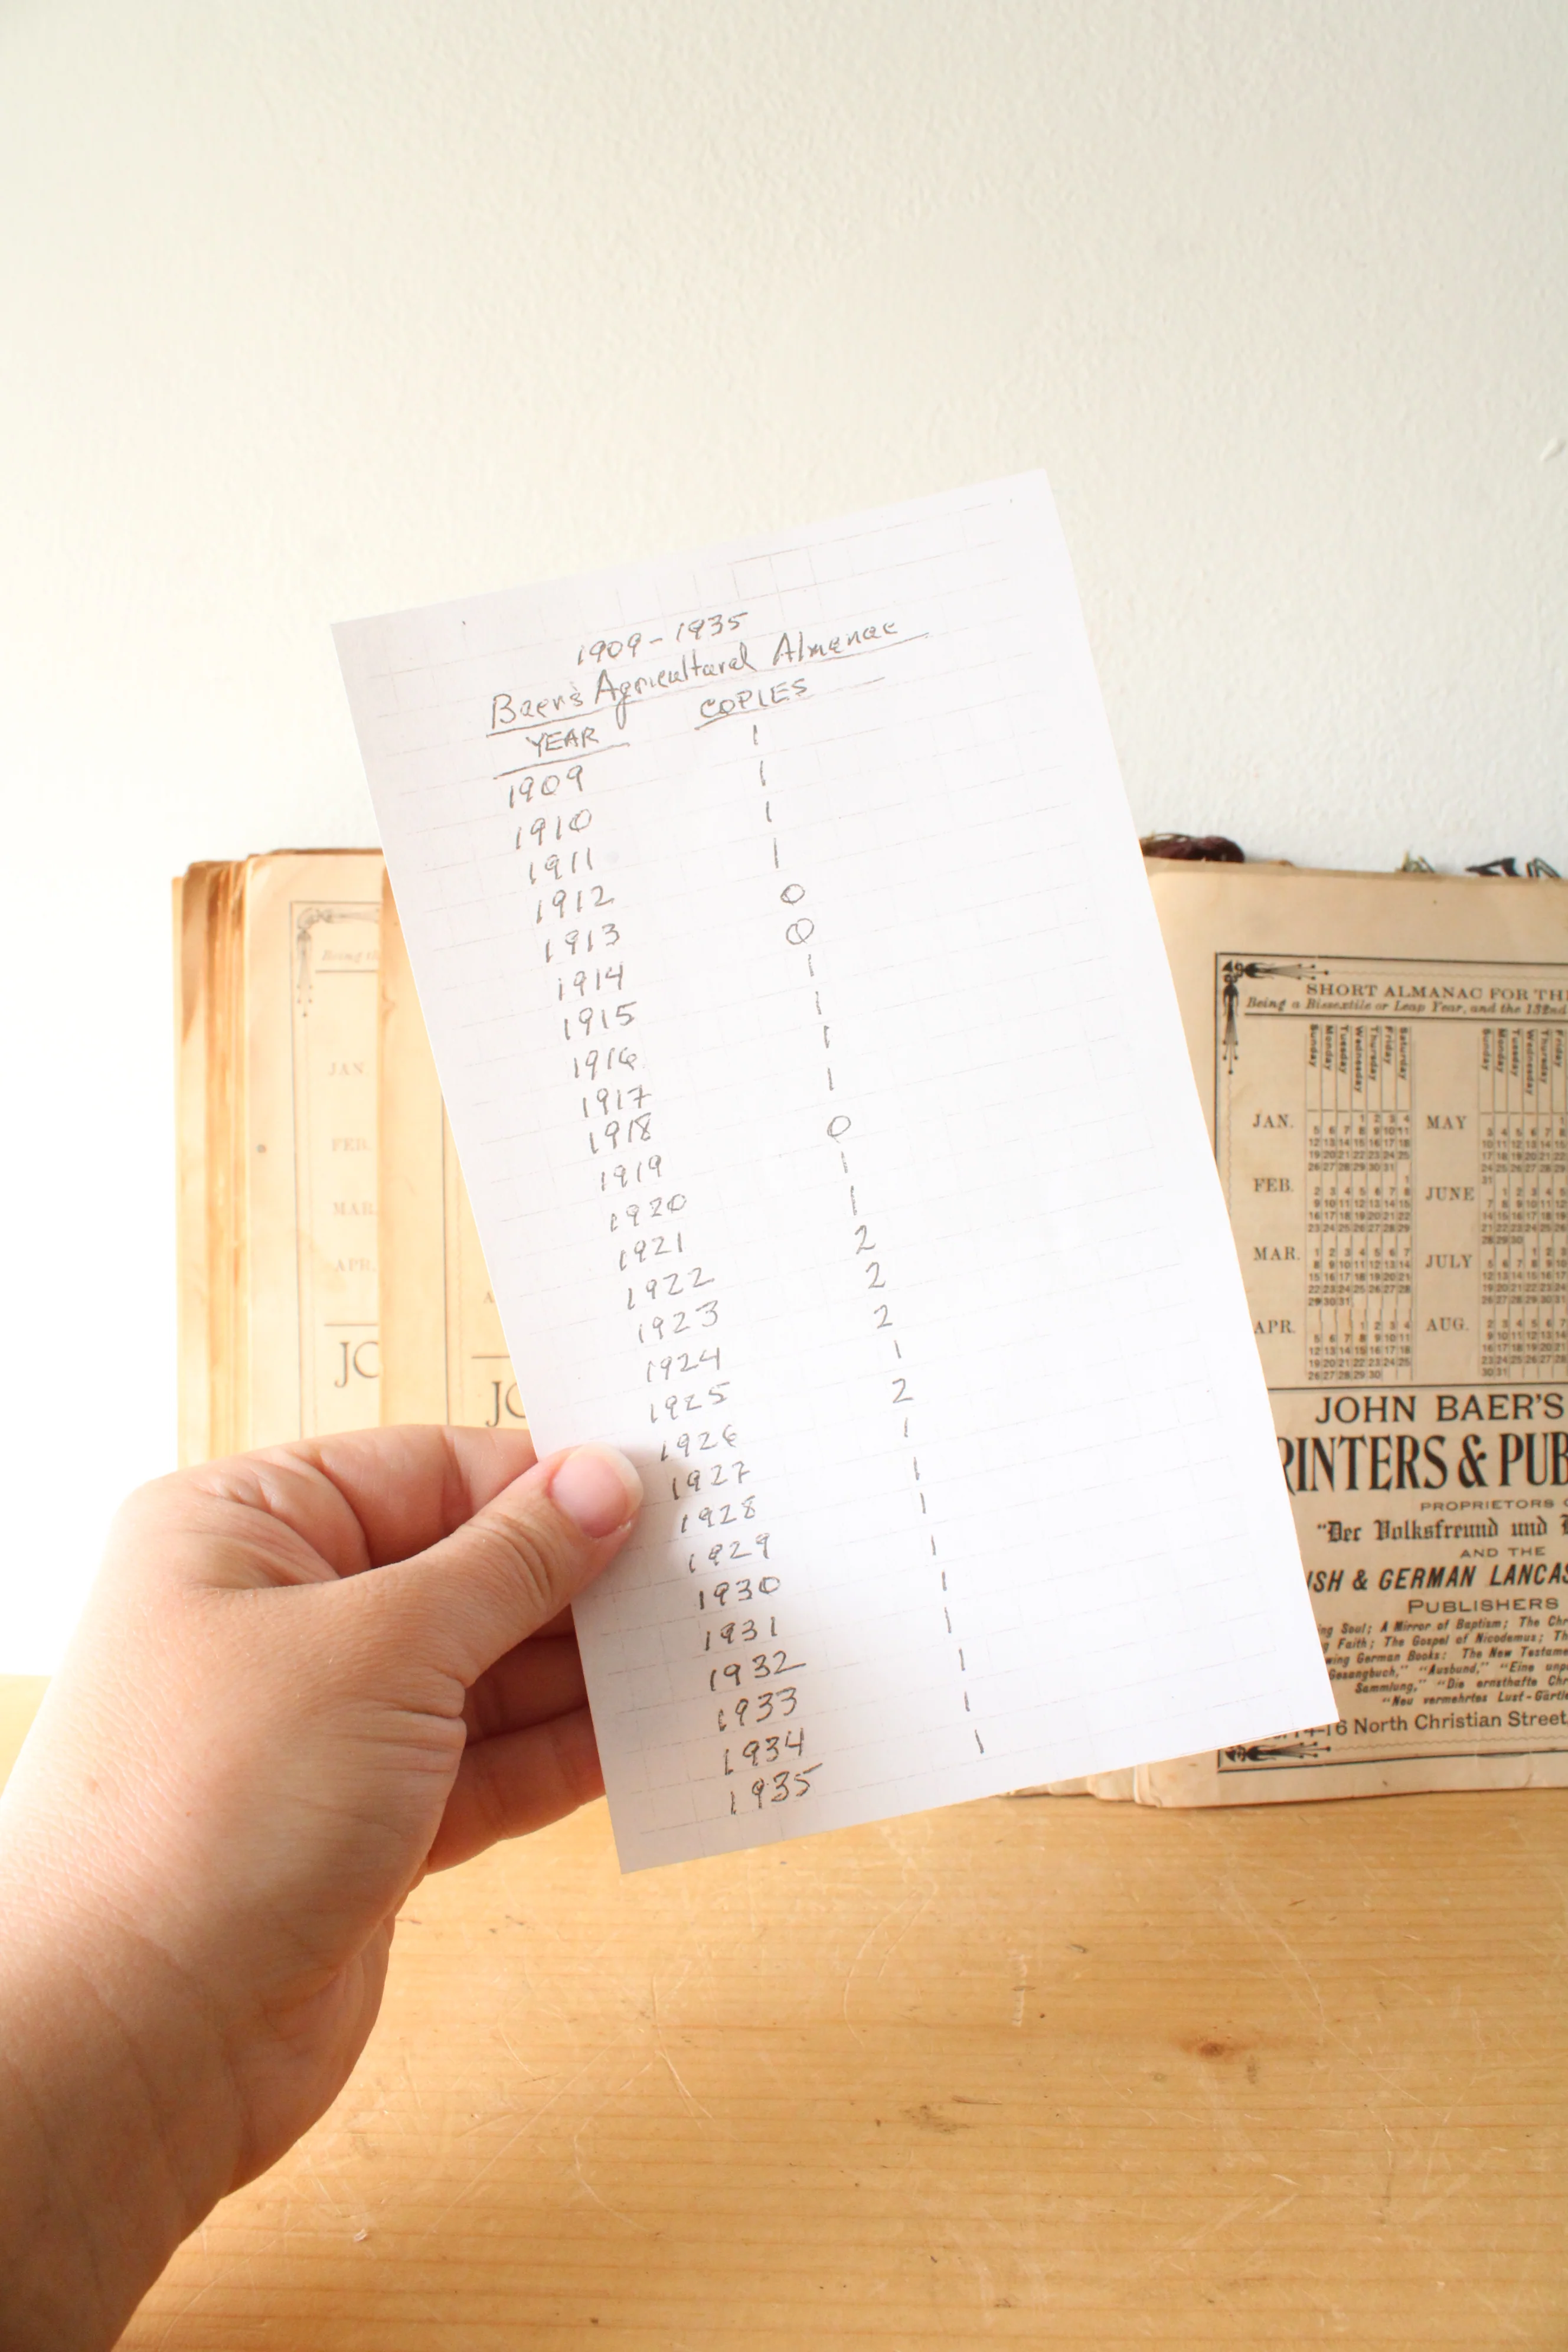 1909-1935
Baer's Agricultural Almanac
YEAR COPIES
1909 1
1910 1
1911 1
1912 1
1913 0
1914 0
1915 1
1916 1
1917 1
1918 1
1919 0
1920 1
1921 1
1922 2
1923 2
1924 2
1925 1
1926 2
1927 1
1928 1
1929 1
1930 1
1931 1
1932 1
1933 1
1934 1
1935 1
Being th
JAN
FEB.
MAR.
APR.
JO
A
JO
49
SHORT ALMANAC FOR TH
Being a Bissextile or Leap Year, and the 132nd
Sunday Monday Tuesday Wednesday Thursday Friday Saturday
JAN.
1 2 3 4
5 6 7 8 9 10 11
12 13 14 15 16 17 18
19 20 21 22 23 24 25
26 27 28 29 30 31
FEB.
1
2 3 4 5 6 7 8
9 10 11 12 13 14 15
16 17 18 19 20 21 22
23 24 25 26 27 28 29
MAR.
1 2 3 4 5 6 7
8 9 10 11 12 13 14
15 16 17 18 19 20 21
22 23 24 25 26 27 28
29 30 31
APR.
1 2 3 4
5 6 7 8 9 10 11
12 13 14 15 16 17 18
19 20 21 22 23 24 25
26 27 28 29 30
Sunday Monday Tuesday Wednesday Thursday Friday
MAY
JUNE
JULY
AUG.
JOHN BAER'S
RINTERS & PUB
PROPRIETORS
"Der Volksfreund und
AND THE
ISH & GERMAN LANCAS
PUBLISHERS
ng Soul; A Mirror of Baptism; The Chr
Faith; The Gospel of Nicodemus; Th
wing German Books: The New Testame
Gesangbuch," "Ausbund," "Eine unp
Sammlung," "Die ernsthafte Chr
"Neu vermehrtes Lust-Gärtl
14-16 North Christian Street,